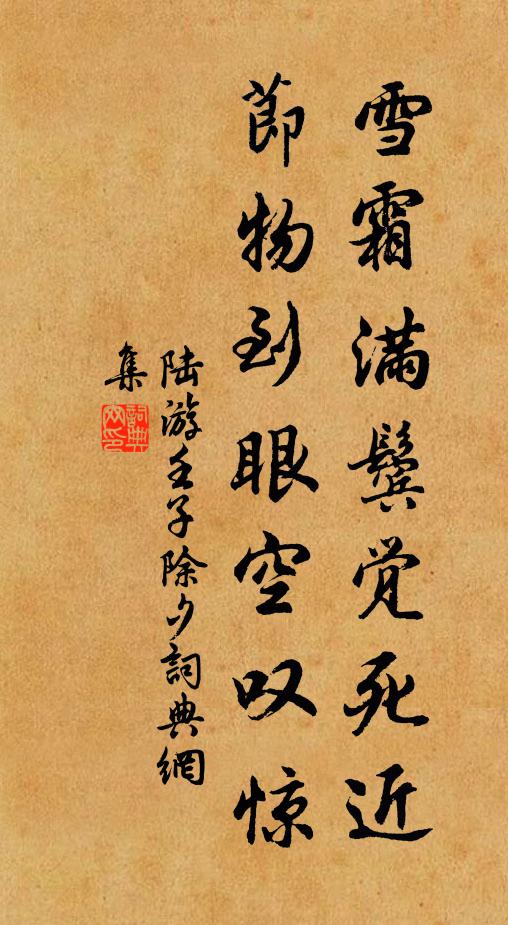 雪霜满鬓觉死近
節物到眼空叹惊
陆游壬子除夕詞典網
集
詞典網印